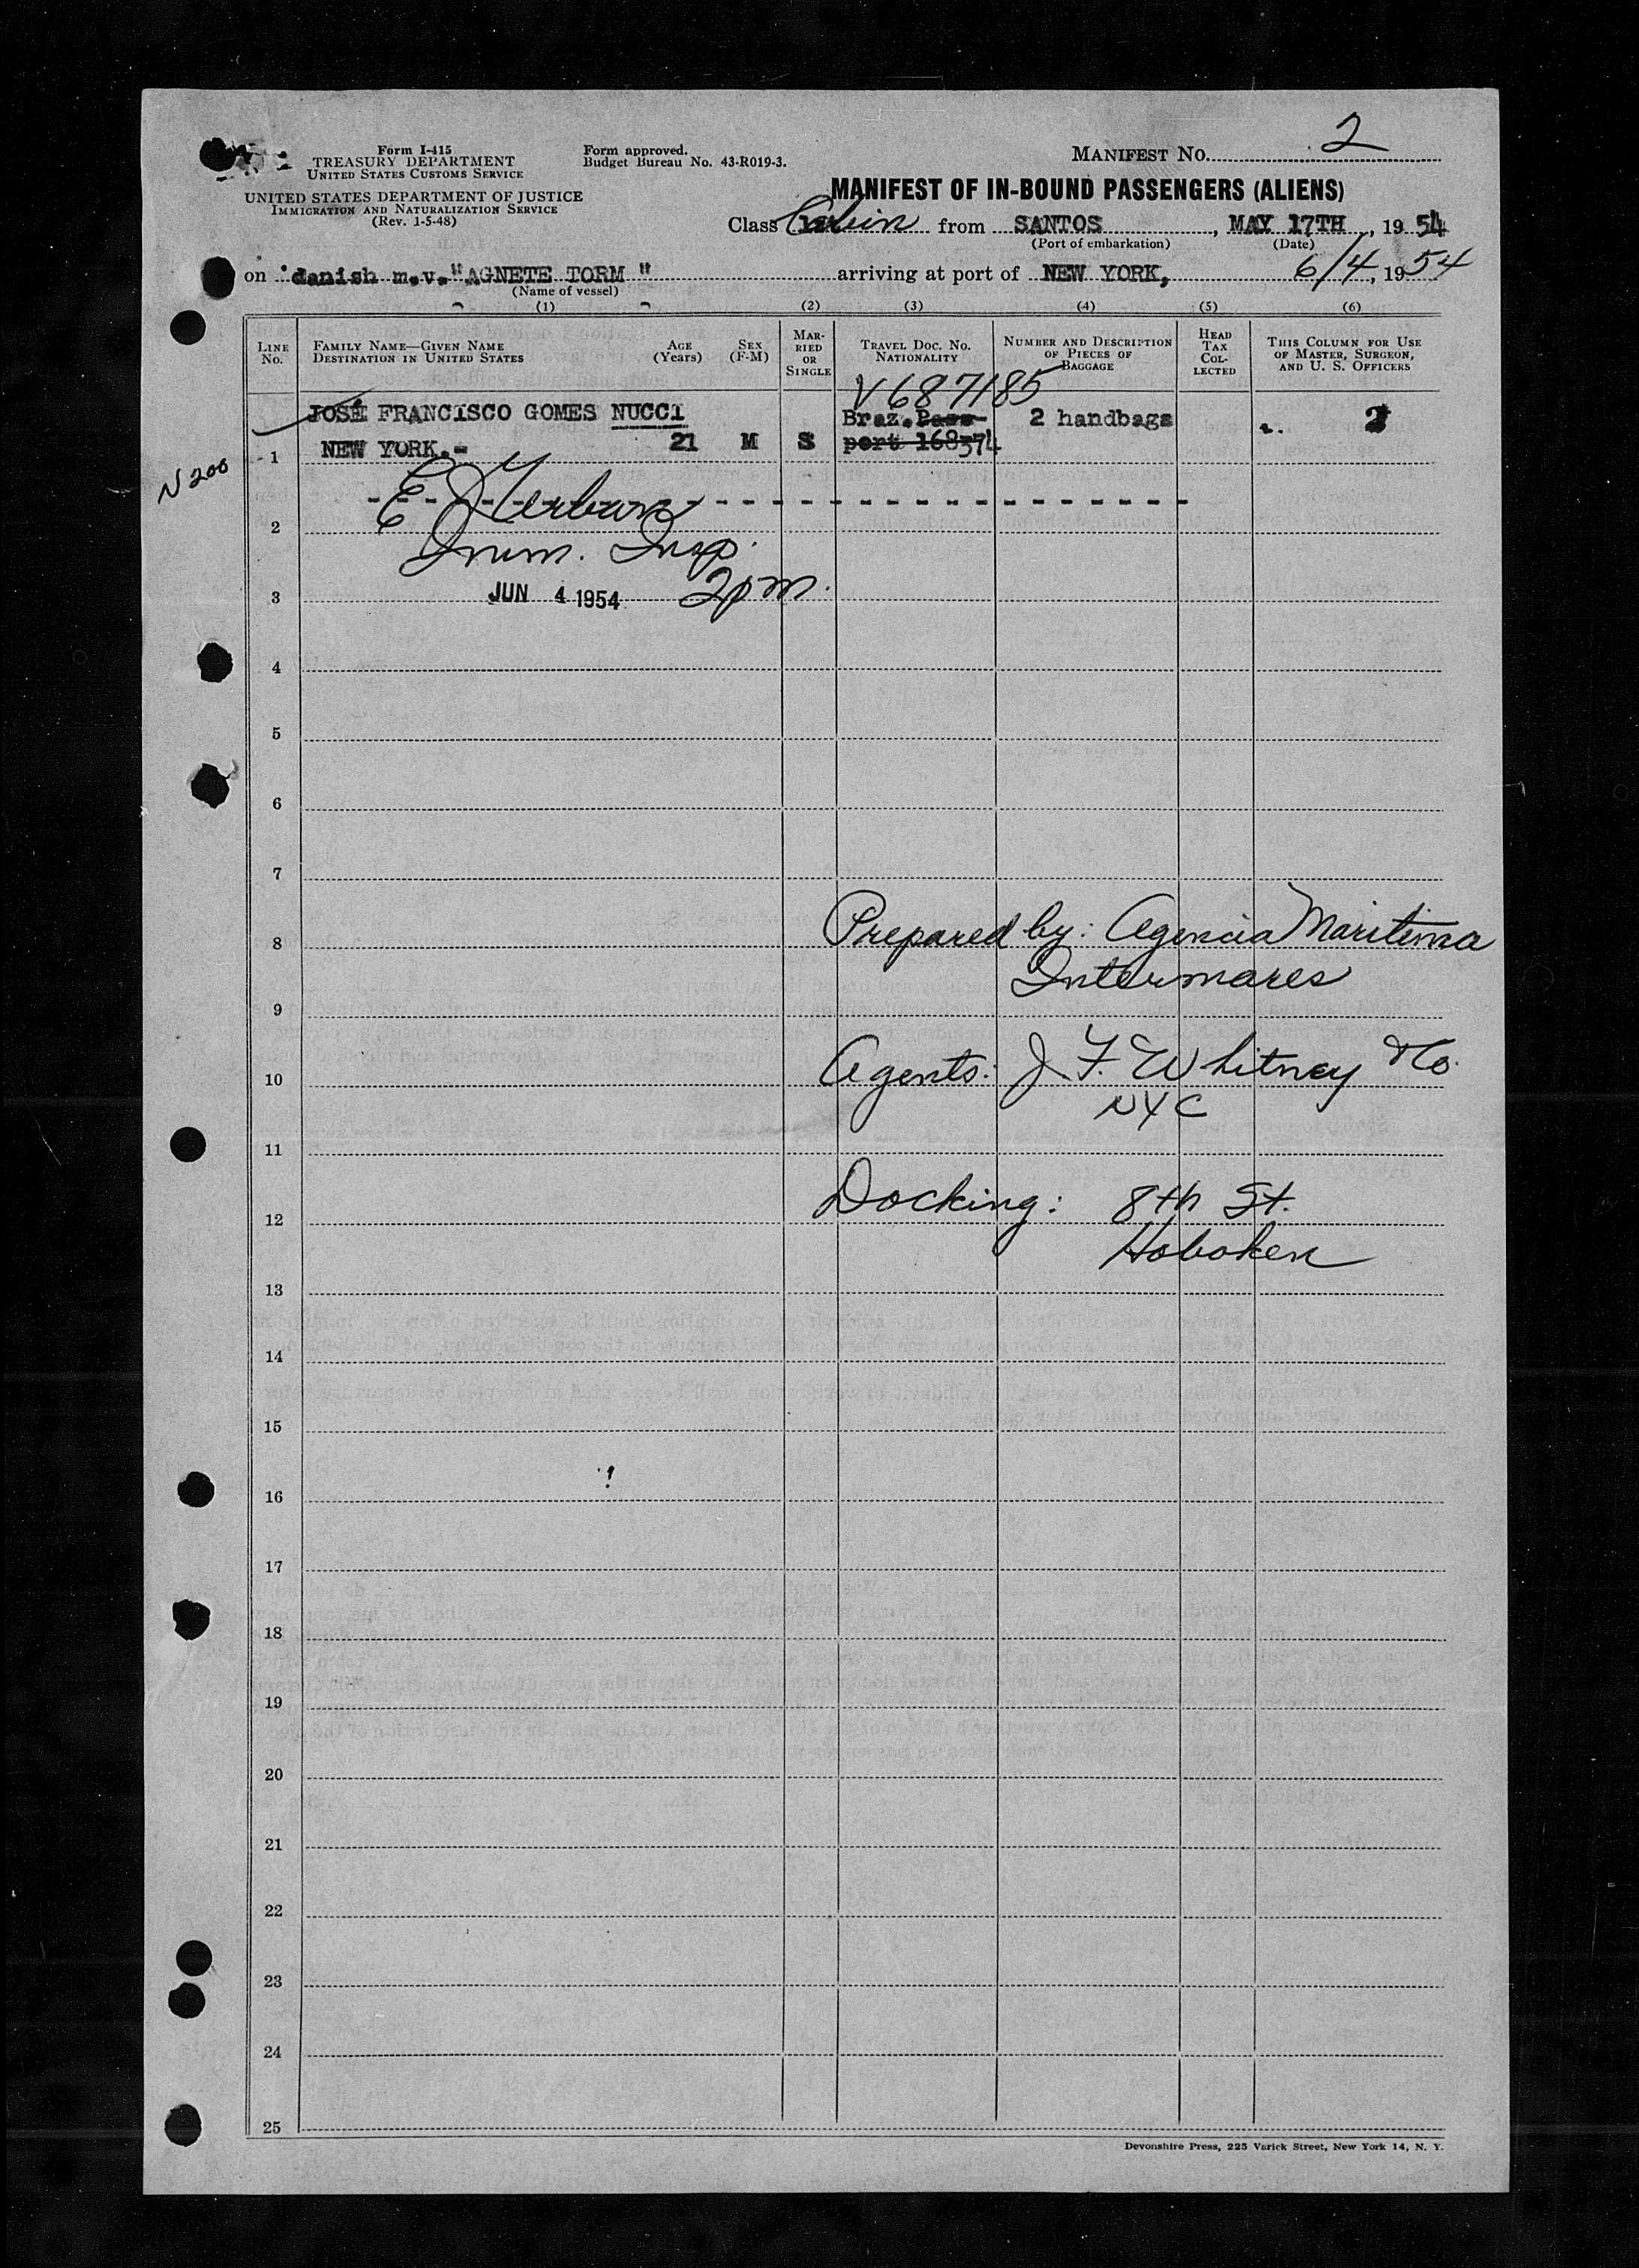 Form I-415
TREASURY DEPARTMENT
UNITED STATES CUSTOMS SERVICE
UNITED STATES DEPARTMENT OF JUSTICE
IMMIGRATION AND NATURALIZATION SERVICE
(Rev. 1-5-48)
Form approved.
Budget Bureau No. 43-R019-3.
MANIFEST NO. 2
MANIFEST OF IN-BOUND PASSENGERS (ALIENS)
Class Cabin from SANTOS, MAY 17TH, 19 54
(Port of embarkation) (Date)
on danish m.v. "AGNETE TORM " arriving at port of NEW YORK, 6/4, 19 54
(Name of vessel)
(1) (2) (3) (4) (5) (6)
LINE NO.
FAMILY NAME—GIVEN NAME
DESTINATION IN UNITED STATES
AGE (Years)
SEX (F-M)
MARRIED OR SINGLE
TRAVEL DOC. NO. NATIONALITY
NUMBER AND DESCRIPTION OF PIECES OF BAGGAGE
HEAD TAX COLLECTED
THIS COLUMN FOR USE OF MASTER, SURGEON, AND U. S. OFFICERS
V687185
JOSÉ FRANCISCO GOMES NUCCI Braz. Pass- 2 handbags
1 NEW YORK.- 21 M S port 168374
N 200
2
Imm. Insp.
3 JUN 4 1954 2pm.
4
5
6
7
8 Prepared by: Agencia Maritima
Intermares
9
10 Agents: J. F. Whitney & Co.
NYC
11
12 Docking: 8th St.
Hoboken
13
14
15
16
17
18
19
20
21
22
23
24
25
Devonshire Press, 225 Varick Street, New York 14, N. Y.